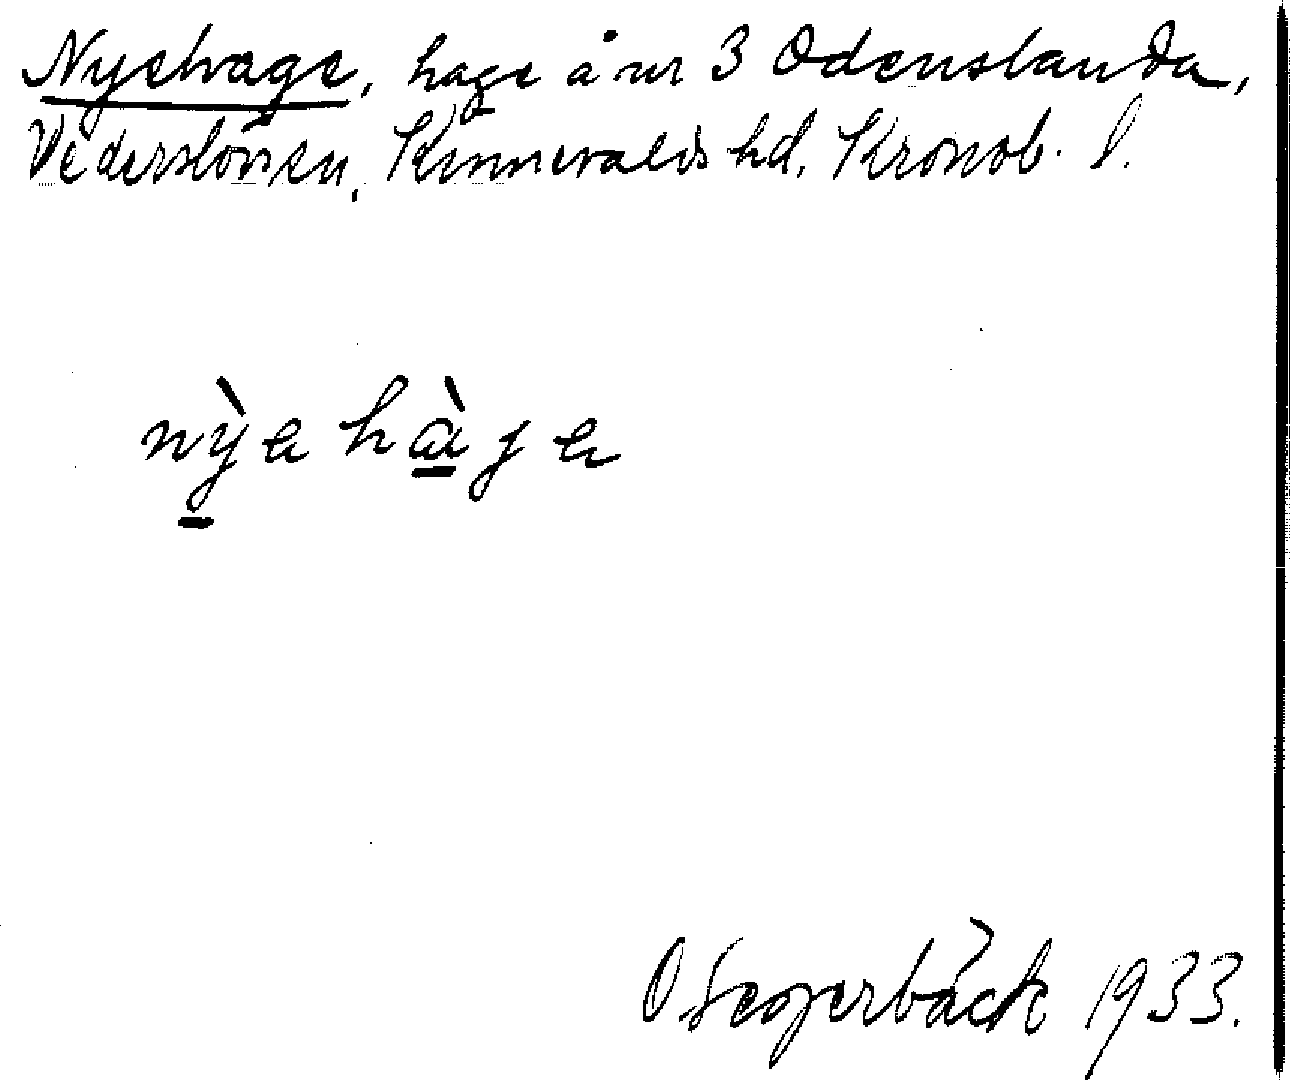 Nyehage, hage å nr 3 Odenslanda,
Vederslövs sn, Kinnevalds hd, Kronob. l.
nỳe hàge
O Segerbäck 1933.